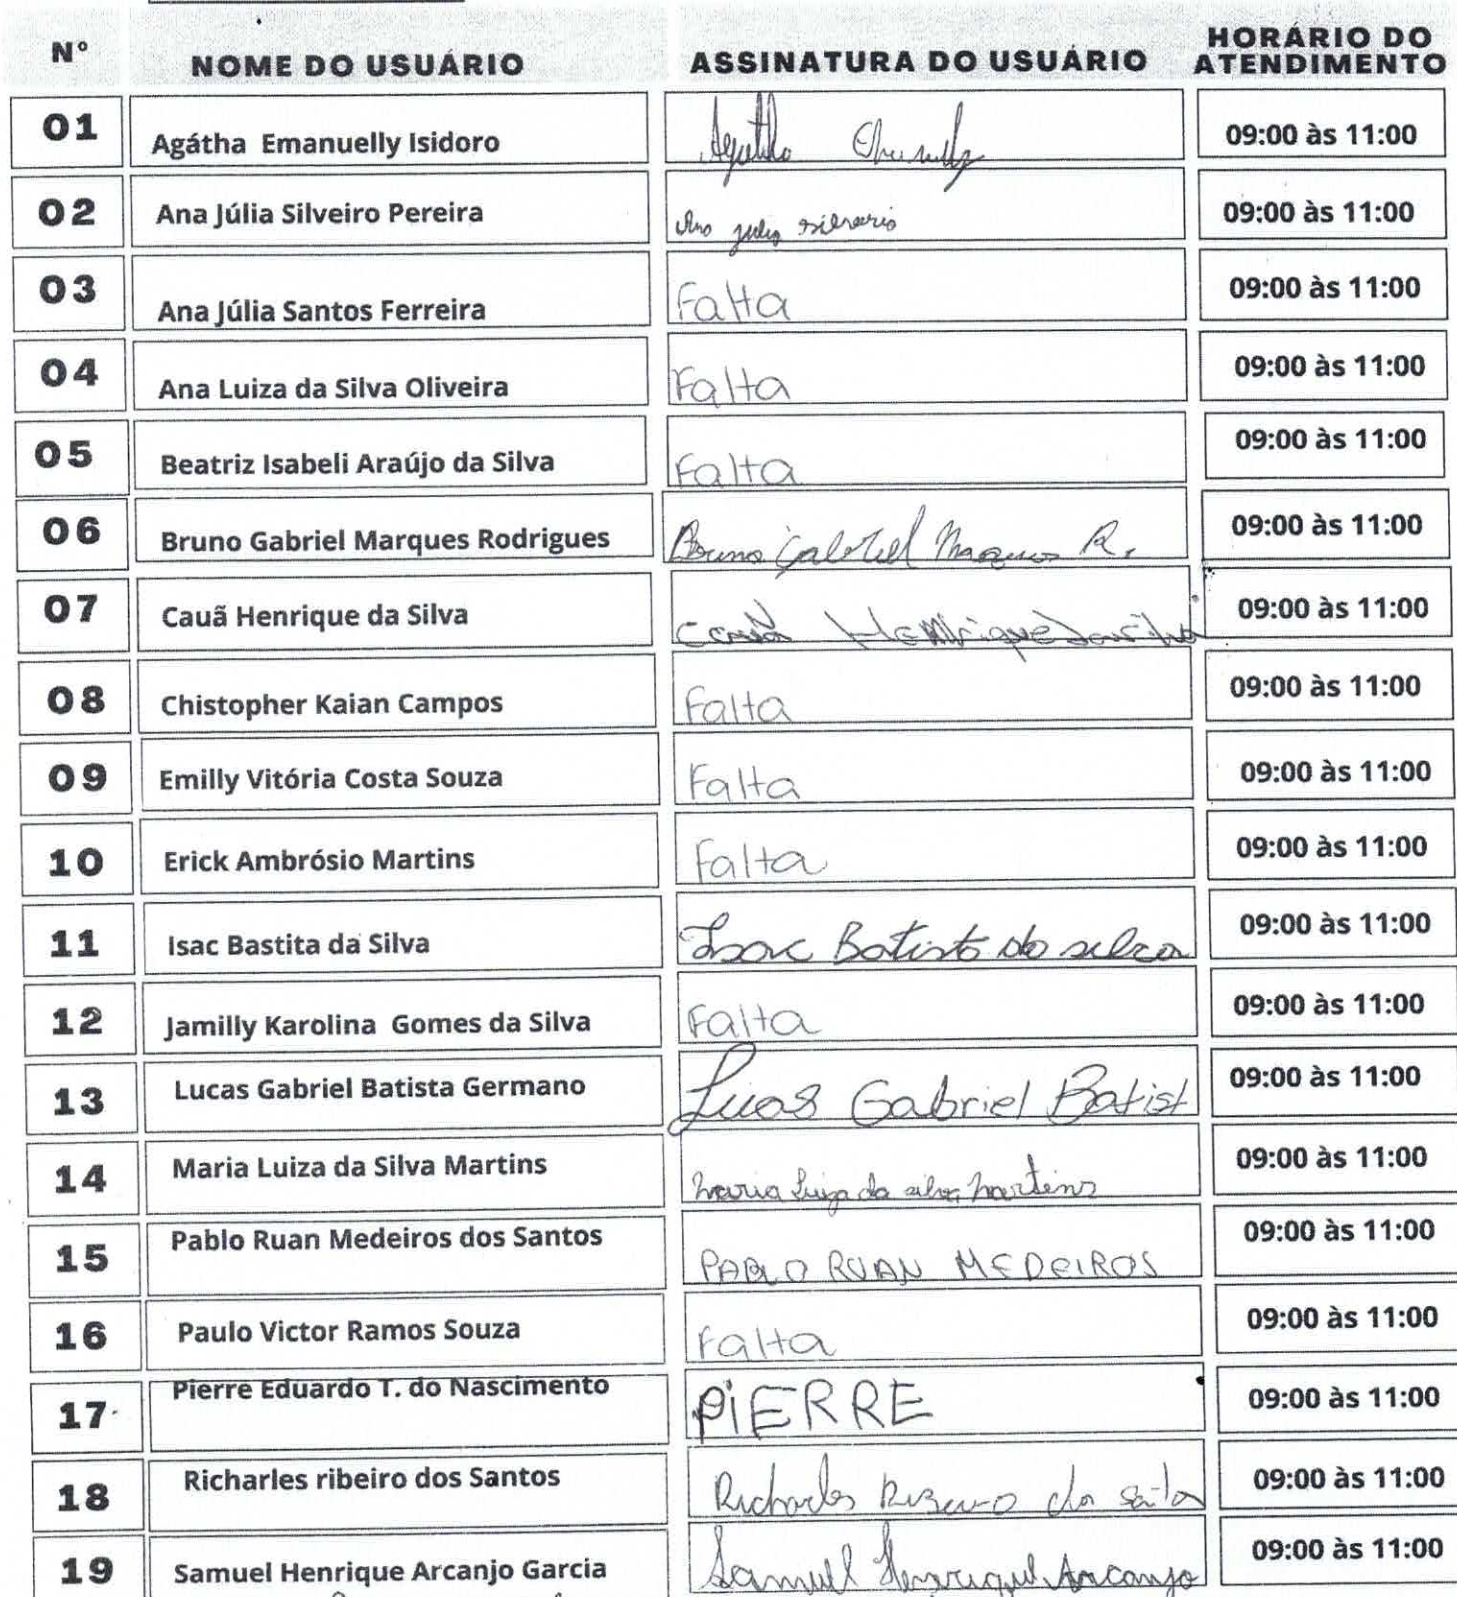 Nº NOME DO USUÁRIO ASSINATURA DO USUÁRIO HORÁRIO DO ATENDIMENTO
01 Agátha Emanuelly Isidoro Agatha 09:00 às 11:00
02 Ana Júlia Silveiro Pereira Ana julia silverio 09:00 às 11:00
03 Ana Júlia Santos Ferreira Falta 09:00 às 11:00
04 Ana Luiza da Silva Oliveira Falta 09:00 às 11:00
05 Beatriz Isabeli Araújo da Silva Falta 09:00 às 11:00
06 Bruno Gabriel Marques Rodrigues Bruno Gabriel Marques R. 09:00 às 11:00
07 Cauã Henrique da Silva Cauã Henrique da Silva 09:00 às 11:00
08 Chistopher Kaian Campos Falta 09:00 às 11:00
09 Emilly Vitória Costa Souza Falta 09:00 às 11:00
10 Erick Ambrósio Martins Falta 09:00 às 11:00
11 Isac Bastita da Silva Isac Batista da silva 09:00 às 11:00
12 Jamilly Karolina Gomes da Silva Falta 09:00 às 11:00
13 Lucas Gabriel Batista Germano Lucas Gabriel Batist 09:00 às 11:00
14 Maria Luiza da Silva Martins maria Luiza da silva martins 09:00 às 11:00
15 Pablo Ruan Medeiros dos Santos PABLO RUAN MEDEIROS 09:00 às 11:00
16 Paulo Victor Ramos Souza Falta 09:00 às 11:00
17 Pierre Eduardo T. do Nascimento PiERRE 09:00 às 11:00
18 Richarles ribeiro dos Santos Richarles 09:00 às 11:00
19 Samuel Henrique Arcanjo Garcia Samuel Henrique Arcanjo 09:00 às 11:00